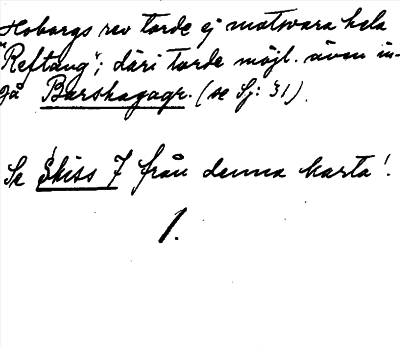 Hoborgs rev torde ej motsvara hela
"Reftang"; däri torde möjl. även in-
gå Barshagagr. (se Sj: 31).
Se Skiss 7 från denna karta!
1.